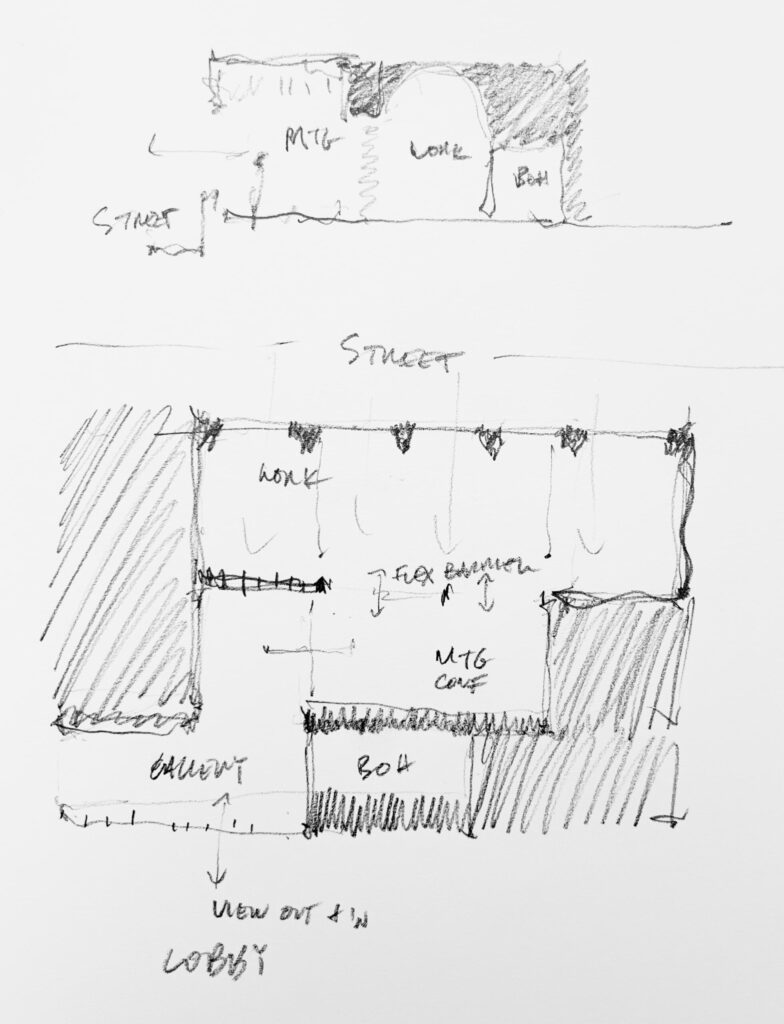 MTG
WORK
BOH
STREET
STREET
WORK
FLEX BARRIER
MTG
CONF
GALLERY
BOH
VIEW OUT & IN
LOBBY